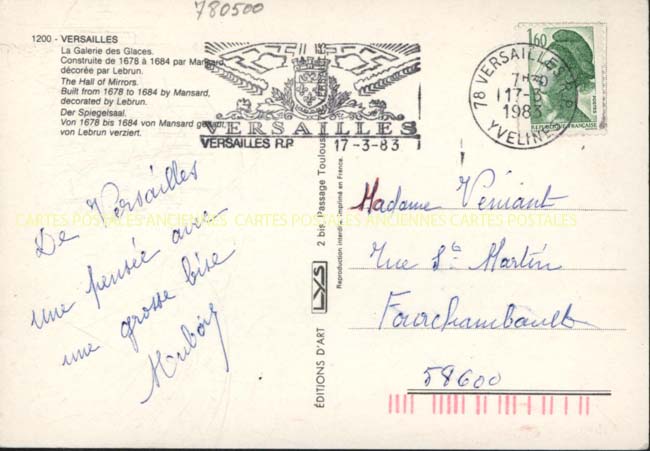 780500
1200 - VERSAILLES
La Galerie des Glaces.
Construite de 1678 à 1684 par Mansard,
décorée par Lebrun.
The Hall of Mirrors.
Built from 1678 to 1684 by Mansard,
decorated by Lebrun.
Der Spiegelsaal.
Von 1678 bis 1684 von Mansard gebaut,
von Lebrun verziert.
VERSAILLES
VERSAILLES R.P
17-3-83
1,60
REPUBLIQUE FRANÇAISE
78 VERSAILLES R.P.
17-3
1983
YVELINES
De Versailles
une pensée avec
une grosse bise
EDITIONS D'ART LYS 2 bis, Passage Toulouse
Reproduction interdite. Imprimé en France.
Madame Verniant
Rue Ste Martin
Fourchambault
58600
CARTES POSTALES ANCIENNES CARTES POSTALES ANCIENNES CARTES POSTALES